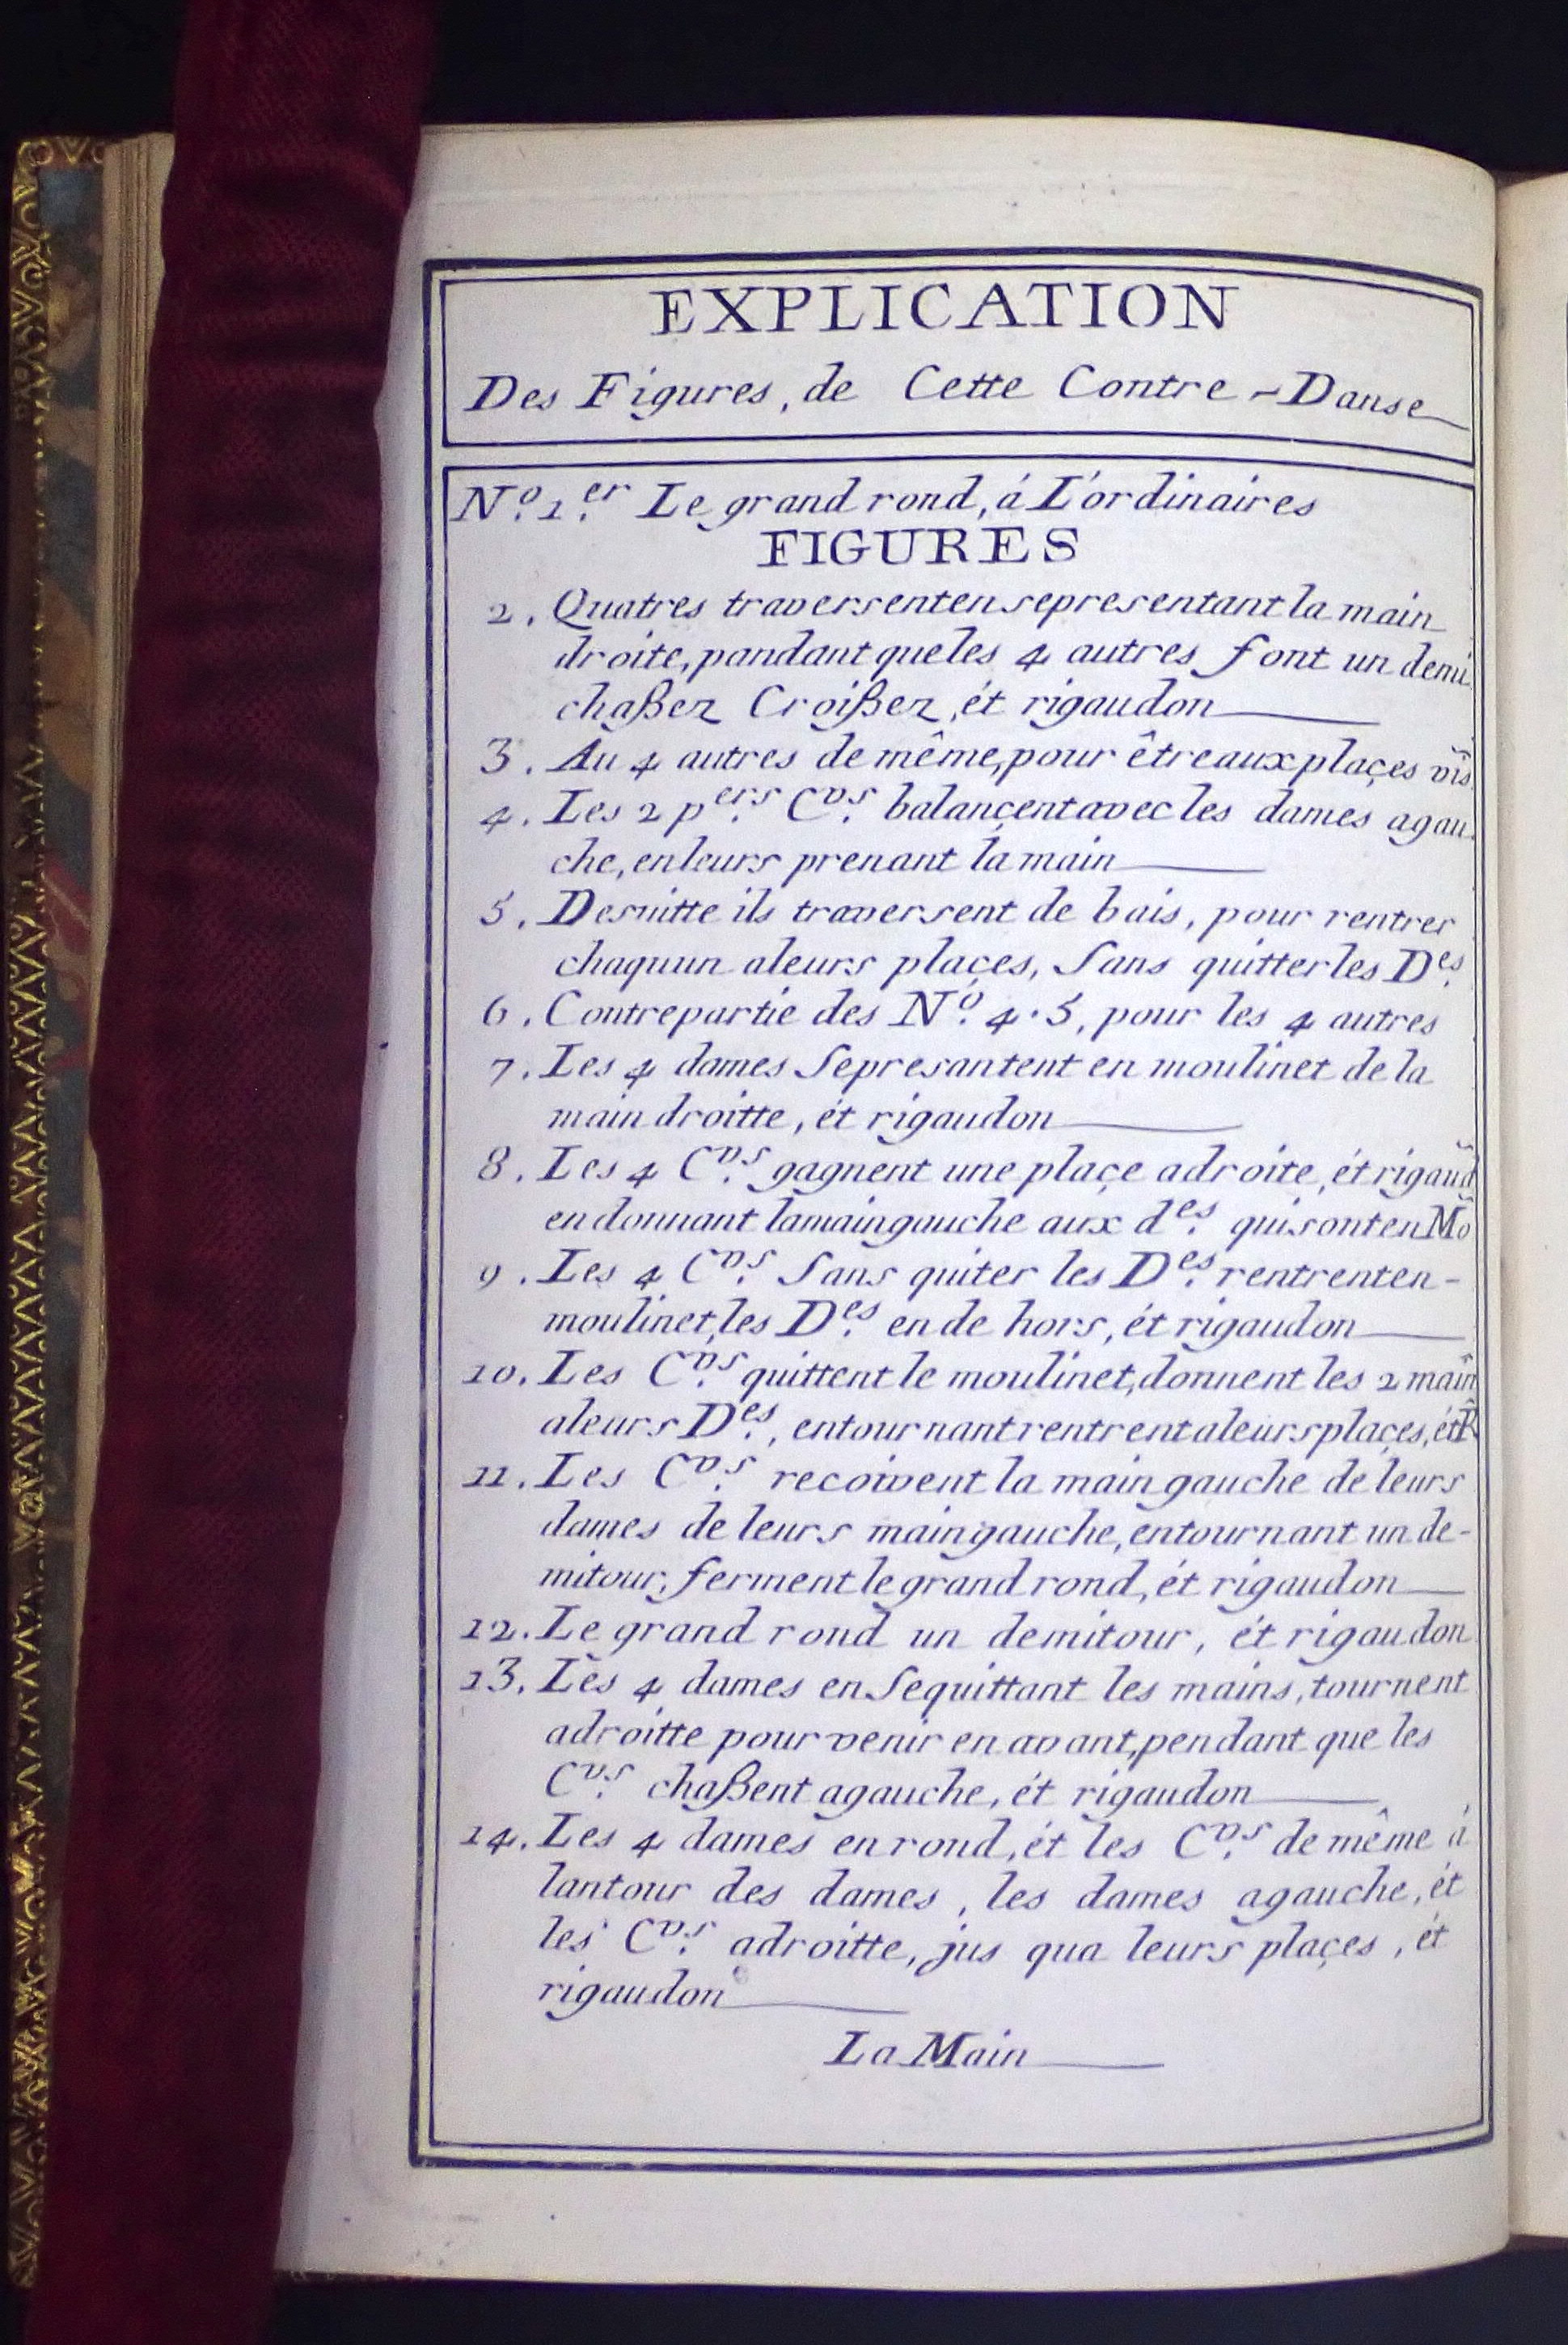 EXPLICATION
Des Figures, de Cette Contre-Danse
N.º 1.er Le grand rond, á L'ordinaires
FIGURES
2. Quatres traversent en se presentant la main
droite, pandant que les 4 autres font un demi
chaßez Croißez, ét rigaudon
3. Au 4 autres de même, pour être aux plaçes vis
4. Les 2 p.ers C.vs balançent avec les dames agau
che, en leurs prenant la main
5. Desuitte ils traversent de bais, pour rentrer
chaquun aleurs plaçes, Sans quitter les D.es
6. Contrepartie des N.º 4.5, pour les 4 autres
7. Les 4 dames Se presantent en moulinet de la
main droitte, ét rigaudon
8. Les 4 C.vs gagnent une plaçe adroite, ét rigaud
en donnant la main gauche aux d.es qui sont en Mo
9. Les 4 C.vs Sans quiter les D.es rentrent en-
moulinet, les D.es en de hors, ét rigaudon
10. Les C.vs quittent le moulinet, donnent les 2 main
aleurs D.es, entournant rentrent aleurs plaçes, ét R
11. Les C.vs recoivent la main gauche de leurs
dames de leurs main gauche, entournant un de-
mitour, ferment le grand rond, ét rigaudon
12. Le grand rond un demitour, ét rigaudon
13. Les 4 dames en Se quittant les mains, tournent
adroitte pour venir en avant, pendant que les
C.vs chaßent agauche, ét rigaudon
14. Les 4 dames en rond, ét les C.vs de même á
lantour des dames, les dames agauche, ét
les C.vs adroitte, jus qua leurs plaçes, ét
rigaudon
La Main